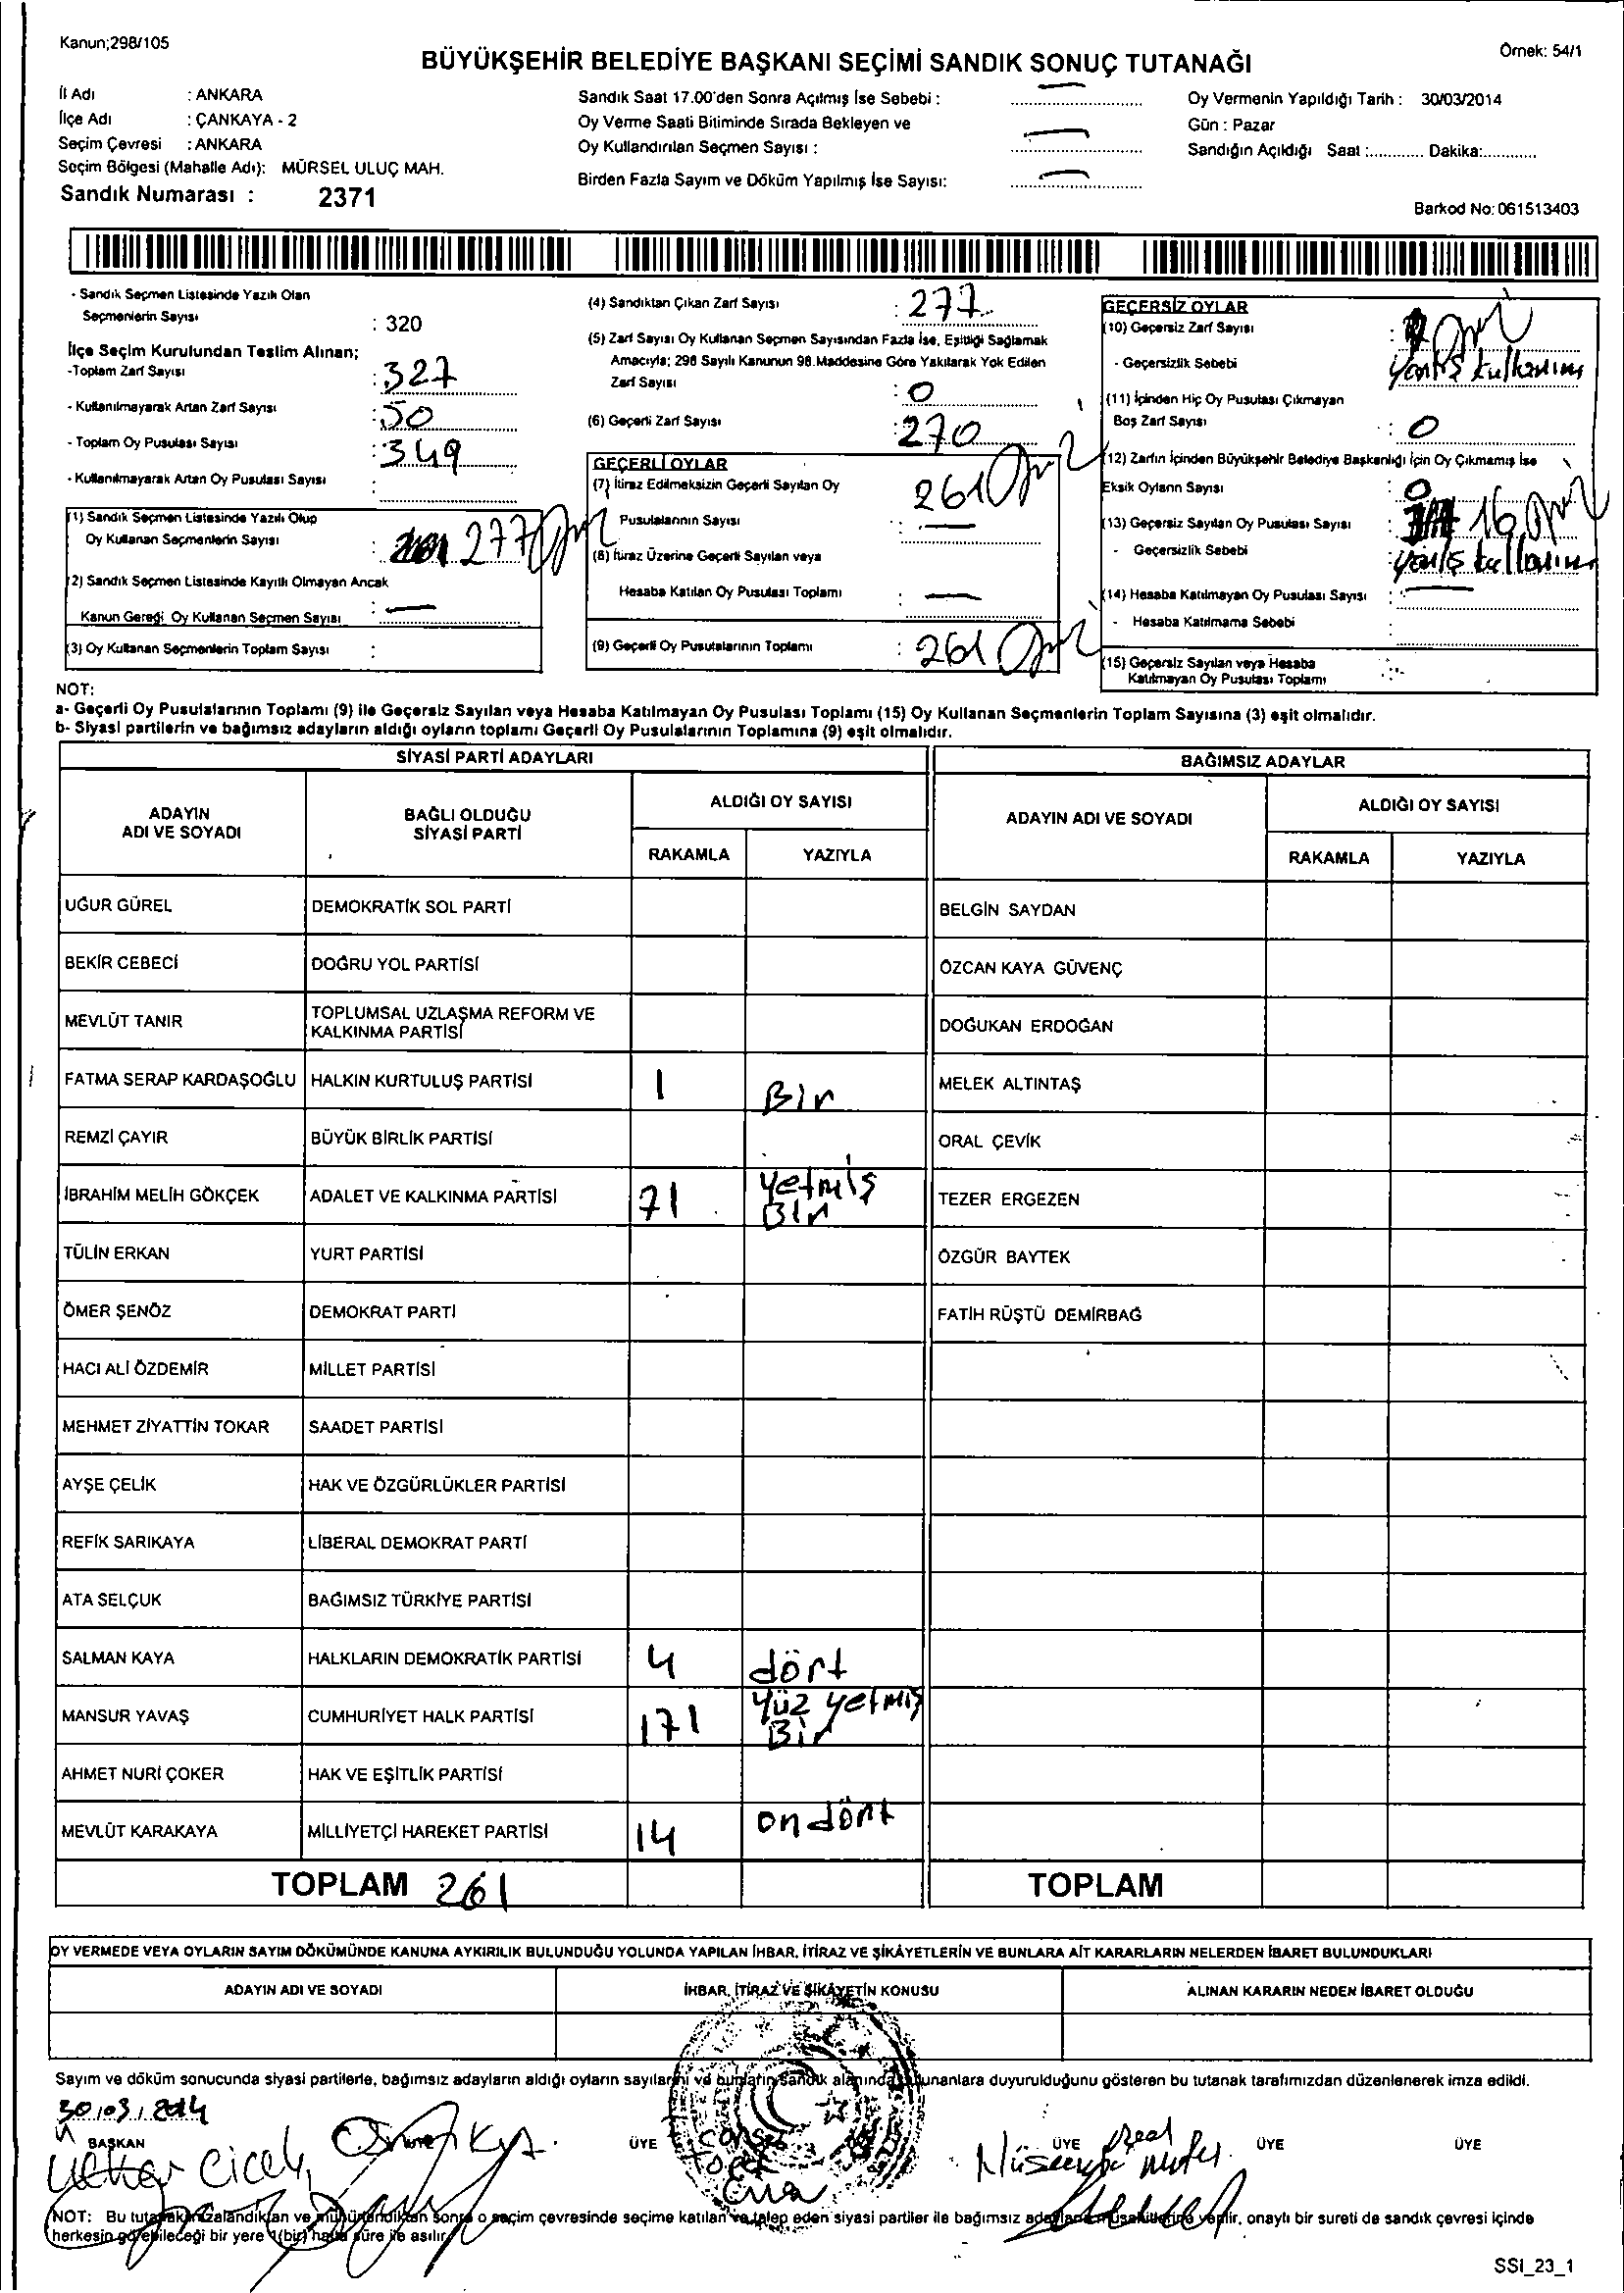 Kanun;298/105
BÜYÜKŞEHİR BELEDİYE BAŞKANI SEÇİMİ SANDIK SONUÇ TUTANAĞI
Örnek: 54/1
İl Adı : ANKARA
İlçe Adı : ÇANKAYA - 2
Seçim Çevresi : ANKARA
Seçim Bölgesi (Mahalle Adı): MÜRSEL ULUÇ MAH.
Sandık Numarası : 2371
Sandık Saat 17.00'den Sonra Açılmış İse Sebebi : —
Oy Verme Saati Bitiminde Sırada Bekleyen ve
Oy Kullandırılan Seçmen Sayısı : —
Birden Fazla Sayım ve Döküm Yapılmış İse Sayısı: —
Oy Vermenin Yapıldığı Tarih : 30/03/2014
Gün : Pazar
Sandığın Açıldığı Saat :............ Dakika:............
Barkod No: 061513403
- Sandık Seçmen Listesinde Yazılı Olan
Seçmenlerin Sayısı : 320
İlçe Seçim Kurulundan Teslim Alınan;
-Toplam Zarf Sayısı : 327
- Kullanılmayarak Artan Zarf Sayısı : 50
- Toplam Oy Pusulası Sayısı : 349
- Kullanılmayarak Artan Oy Pusulası Sayısı :
(1) Sandık Seçmen Listesinde Yazılı Olup
Oy Kullanan Seçmenlerin Sayısı : 277
(2) Sandık Seçmen Listesinde Kayıtlı Olmayan Ancak
Kanun Gereği Oy Kullanan Seçmen Sayısı : —
(3) Oy Kullanan Seçmenlerin Toplam Sayısı :
(4) Sandıktan Çıkan Zarf Sayısı : 277
(5) Zarf Sayısı Oy Kullanan Seçmen Sayısından Fazla İse, Eşitliği Sağlamak
Amacıyla; 298 Sayılı Kanunun 98.Maddesine Göre Yakılarak Yok Edilen
Zarf Sayısı : 0
(6) Geçerli Zarf Sayısı : 270
GEÇERLİ OYLAR
(7) İtiraz Edilmeksizin Geçerli Sayılan Oy
Pusulalarının Sayısı : 261
(8) İtiraz Üzerine Geçerli Sayılan veya
Hesaba Katılan Oy Pusulası Toplamı : —
(9) Geçerli Oy Pusulalarının Toplamı : 261
GEÇERSİZ OYLAR
(10) Geçersiz Zarf Sayısı :
- Geçersizlik Sebebi yanlış kullanım
(11) İçinden Hiç Oy Pusulası Çıkmayan
Boş Zarf Sayısı : 0
(12) Zarfın İçinden Büyükşehir Belediye Başkanlığı İçin Oy Çıkmamış İse
Eksik Oyların Sayısı : 0
(13) Geçersiz Sayılan Oy Pusulası Sayısı : 16
- Geçersizlik Sebebi : yanlış kullanım
(14) Hesaba Katılmayan Oy Pusulası Sayısı : —
- Hesaba Katılmama Sebebi :
(15) Geçersiz Sayılan veya Hesaba
Katılmayan Oy Pusulası Toplamı :
NOT:
a- Geçerli Oy Pusulalarının Toplamı (9) ile Geçersiz Sayılan veya Hesaba Katılmayan Oy Pusulası Toplamı (15) Oy Kullanan Seçmenlerin Toplam Sayısına (3) eşit olmalıdır.
b- Siyasi partilerin ve bağımsız adayların aldığı oyların toplamı Geçerli Oy Pusulalarının Toplamına (9) eşit olmalıdır.
SİYASİ PARTİ ADAYLARI
BAĞIMSIZ ADAYLAR
ADAYIN ADI VE SOYADI
BAĞLI OLDUĞU SİYASİ PARTİ
ALDIĞI OY SAYISI
ADAYIN ADI VE SOYADI
ALDIĞI OY SAYISI
RAKAMLA YAZIYLA
RAKAMLA YAZIYLA
UĞUR GÜREL DEMOKRATİK SOL PARTİ BELGİN SAYDAN
BEKİR CEBECİ DOĞRU YOL PARTİSİ ÖZCAN KAYA GÜVENÇ
MEVLÜT TANIR TOPLUMSAL UZLAŞMA REFORM VE KALKINMA PARTİSİ DOĞUKAN ERDOĞAN
FATMA SERAP KARDAŞOĞLU HALKIN KURTULUŞ PARTİSİ 1 Bir MELEK ALTINTAŞ
REMZİ ÇAYIR BÜYÜK BİRLİK PARTİSİ ORAL ÇEVİK
İBRAHİM MELİH GÖKÇEK ADALET VE KALKINMA PARTİSİ 71 yetmiş Bir TEZER ERGEZEN
TÜLİN ERKAN YURT PARTİSİ ÖZGÜR BAYTEK
ÖMER ŞENÖZ DEMOKRAT PARTİ FATİH RÜŞTÜ DEMİRBAĞ
HACI ALİ ÖZDEMİR MİLLET PARTİSİ
MEHMET ZİYATTİN TOKAR SAADET PARTİSİ
AYŞE ÇELİK HAK VE ÖZGÜRLÜKLER PARTİSİ
REFİK SARIKAYA LİBERAL DEMOKRAT PARTİ
ATA SELÇUK BAĞIMSIZ TÜRKİYE PARTİSİ
SALMAN KAYA HALKLARIN DEMOKRATİK PARTİSİ 4 dört
MANSUR YAVAŞ CUMHURİYET HALK PARTİSİ 171 Yüz yetmiş Bir
AHMET NURİ ÇOKER HAK VE EŞİTLİK PARTİSİ
MEVLÜT KARAKAYA MİLLİYETÇİ HAREKET PARTİSİ 14 on dört
TOPLAM 261 TOPLAM
OY VERMEDE VEYA OYLARIN SAYIM DÖKÜMÜNDE KANUNA AYKIRILIK BULUNDUĞU YOLUNDA YAPILAN İHBAR, İTİRAZ VE ŞİKÂYETLERİN VE BUNLARA AİT KARARLARIN NELERDEN İBARET BULUNDUKLARI
ADAYIN ADI VE SOYADI İHBAR, İTİRAZ VE ŞİKÂYETİN KONUSU ALINAN KARARIN NEDEN İBARET OLDUĞU
Sayım ve döküm sonucunda siyasi partilerle, bağımsız adayların aldığı oyların sayılarını ve bunların sandık alanında bulunanlara duyurulduğunu gösteren bu tutanak tarafımızdan düzenlenerek imza edildi.
30/03/2014
BAŞKAN ÜYE ÜYE ÜYE ÜYE
NOT: Bu tutanak imzalandıktan ve mühürlendikten sonra o seçim çevresinde seçime katılan ve talep eden siyasi partiler ile bağımsız adayların müşahitlerine verilir, onaylı bir sureti de sandık çevresi içinde
herkesin görebileceği bir yere 1(bir) hafta süre ile asılır.
SSI_23_1